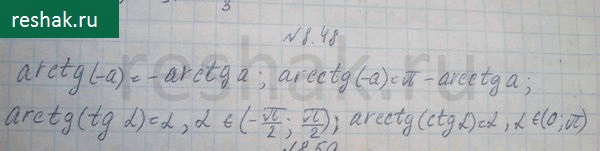 reshak.ru
№8.48
reshak.ru
arctg(-a)=-arctg a; arcctg(-a)=π-arcctg a;
arctg(tg α)=α, α ∈ (-π/2; π/2); arcctg(ctg α)=α, α ∈ (0; π)
№8.50